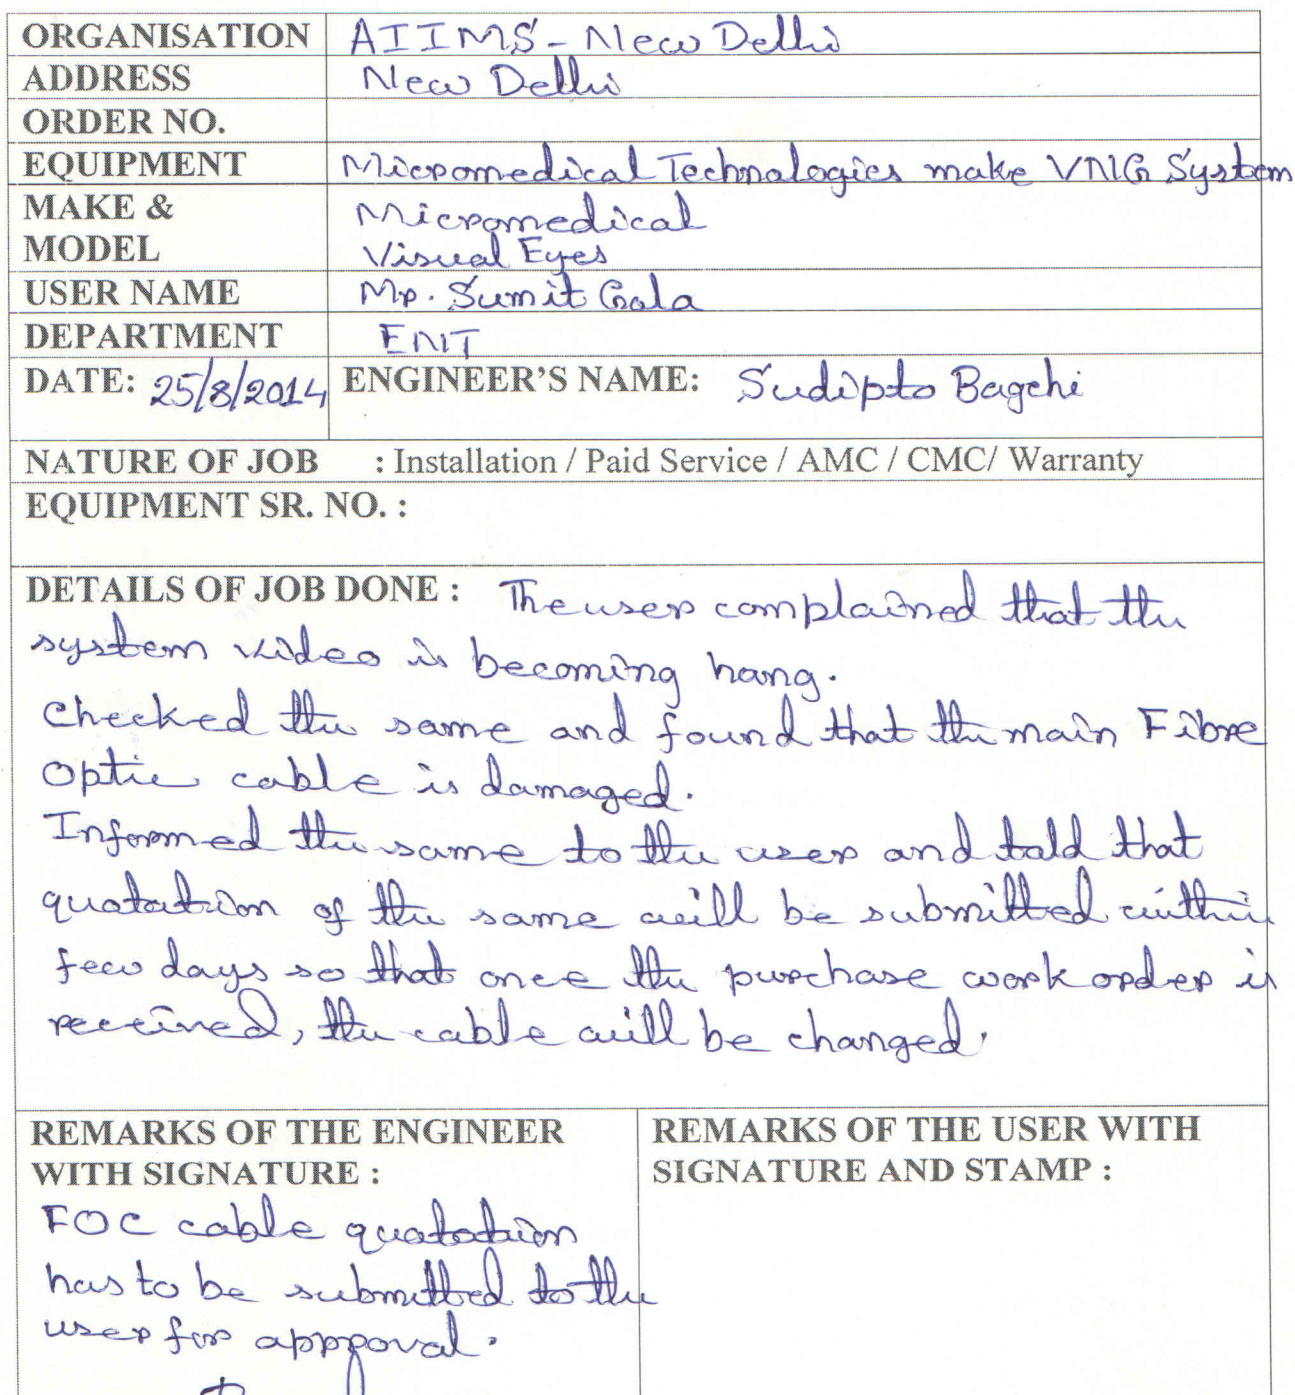 ORGANISATION AIIMS - New Delhi
ADDRESS New Delhi
ORDER NO.
EQUIPMENT Micromedical Technologies make VNG System
MAKE & Micromedical
MODEL Visual Eyes
USER NAME Mr. Sumit Gala
DEPARTMENT ENT
DATE: 25/8/2014 ENGINEER'S NAME: Sudipto Bagchi
NATURE OF JOB : Installation / Paid Service / AMC / CMC/ Warranty
EQUIPMENT SR. NO. :
DETAILS OF JOB DONE : The user complained that the
system video is becoming hang.
Checked the same and found that the main Fibre
Optic cable is damaged.
Informed the same to the user and told that
quotation of the same will be submitted within
few days so that once the purchase work order is
received, the cable will be changed.
REMARKS OF THE ENGINEER
WITH SIGNATURE :
FOC cable quotation
has to be submitted to the
user for approval.
REMARKS OF THE USER WITH
SIGNATURE AND STAMP :